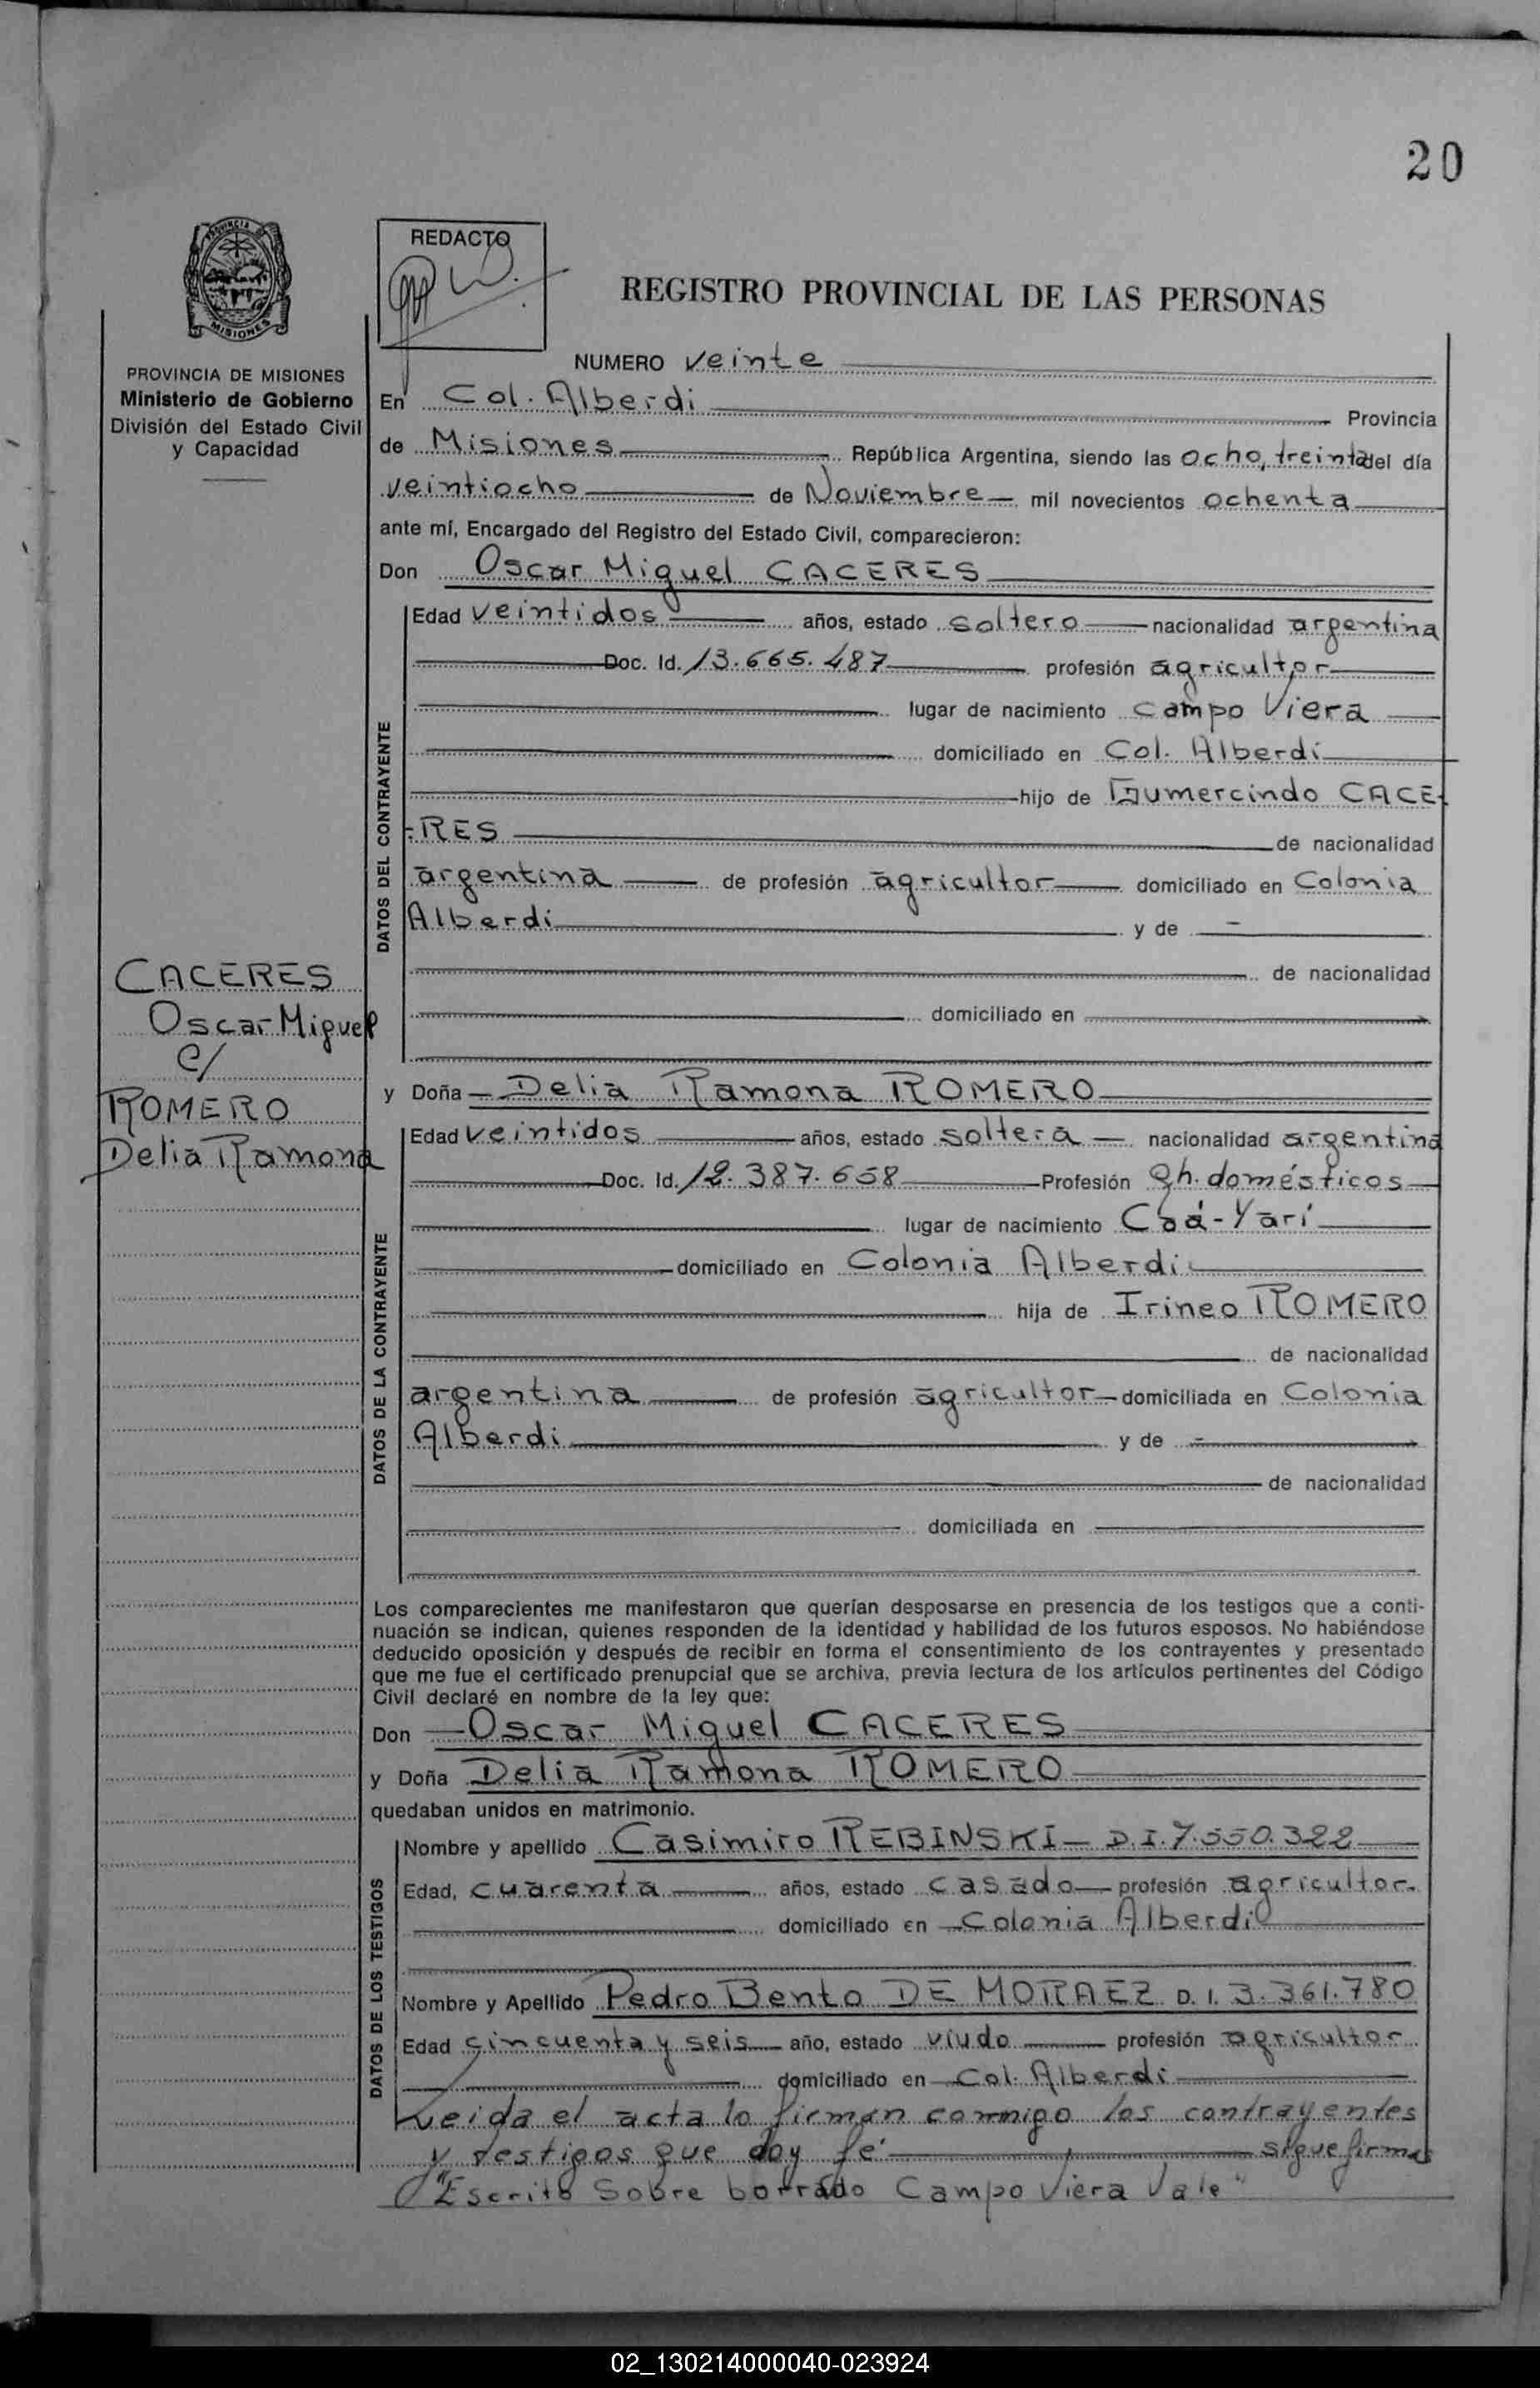 20
PROVINCIA
MISIONES
PROVINCIA DE MISIONES
Ministerio de Gobierno
División del Estado Civil
y Capacidad
REDACTO
REGISTRO PROVINCIAL DE LAS PERSONAS
NUMERO veinte
En Col. Alberdi Provincia
de Misiones República Argentina, siendo las ocho, treinta del día
veintiocho de Noviembre mil novecientos ochenta
ante mí, Encargado del Registro del Estado Civil, comparecieron:
Don Oscar Miguel CACERES
DATOS DEL CONTRAYENTE
Edad veintidos años, estado soltero nacionalidad argentina
Doc. Id. 13.665.487 profesión agricultor
lugar de nacimiento campo Viera
domiciliado en Col. Alberdi
hijo de Gumercindo CACE-
-RES de nacionalidad
argentina de profesión agricultor domiciliado en Colonia
Alberdi y de -
de nacionalidad
domiciliado en
CACERES
Oscar Miguel
c/
ROMERO
Delia Ramona
y Doña Delia Ramona ROMERO
DATOS DE LA CONTRAYENTE
Edad veintidos años, estado soltera nacionalidad argentina
Doc. Id. 12.387.658 Profesión qh. domésticos
lugar de nacimiento Caá-Yarí
domiciliado en Colonia Alberdi
hija de Irineo ROMERO
de nacionalidad
argentina de profesión agricultor domiciliada en Colonia
Alberdi y de -
de nacionalidad
domiciliada en
Los comparecientes me manifestaron que querían desposarse en presencia de los testigos que a conti-
nuación se indican, quienes responden de la identidad y habilidad de los futuros esposos. No habiéndose
deducido oposición y después de recibir en forma el consentimiento de los contrayentes y presentado
que me fue el certificado prenupcial que se archiva, previa lectura de los artículos pertinentes del Código
Civil declaré en nombre de la ley que:
Don Oscar Miguel CACERES
y Doña Delia Ramona ROMERO
quedaban unidos en matrimonio.
DATOS DE LOS TESTIGOS
Nombre y apellido Casimiro REBINSKI D.I. 7.550.322
Edad, cuarenta años, estado casado profesión agricultor.
domiciliado en Colonia Alberdi
Nombre y Apellido Pedro Bento DE MORAEZ D.I. 3.361.780
Edad cincuenta y seis año, estado viudo profesión agricultor
domiciliado en Col. Alberdi
Leida el acta lo firman conmigo los contrayentes
y testigos que doy fé sigue firmas
"Escrito Sobre borrado Campo Viera Vale"
02_130214000040-023924